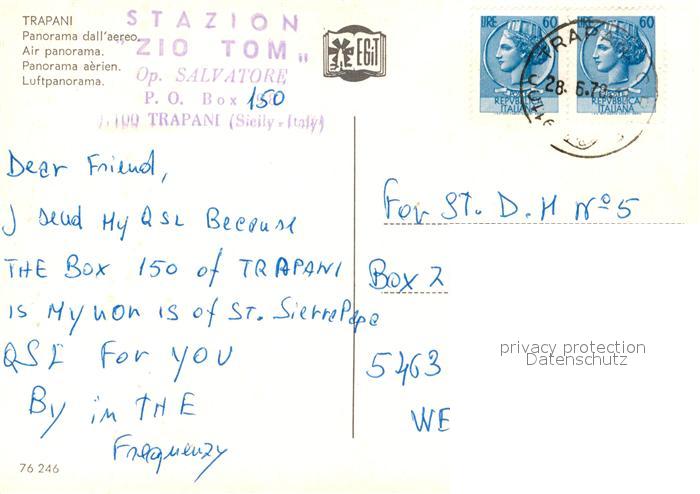 TRAPANI
Panorama dall'aereo.
Air panorama.
Panorama aèrien.
Luftpanorama.
STAZION
"ZIO TOM"
Op. SALVATORE
P. O. Box 150
TRAPANI (Sicily - Italy)
EGIT
LIRE 60
REPVBBLICA
ITALIANA
LIRE 60
REPVBBLICA
ITALIANA
TRAPANI
28.6.78
Dear Friend,
J send My QSL Because
THE Box 150 of TRAPANI
is My non is of ST. Sierra Papa
QSL For YOU
By in THE
Frequenzy
For ST. D. H Nº 5
Box 2
5463
WE
privacy protection
Datenschutz
76 246